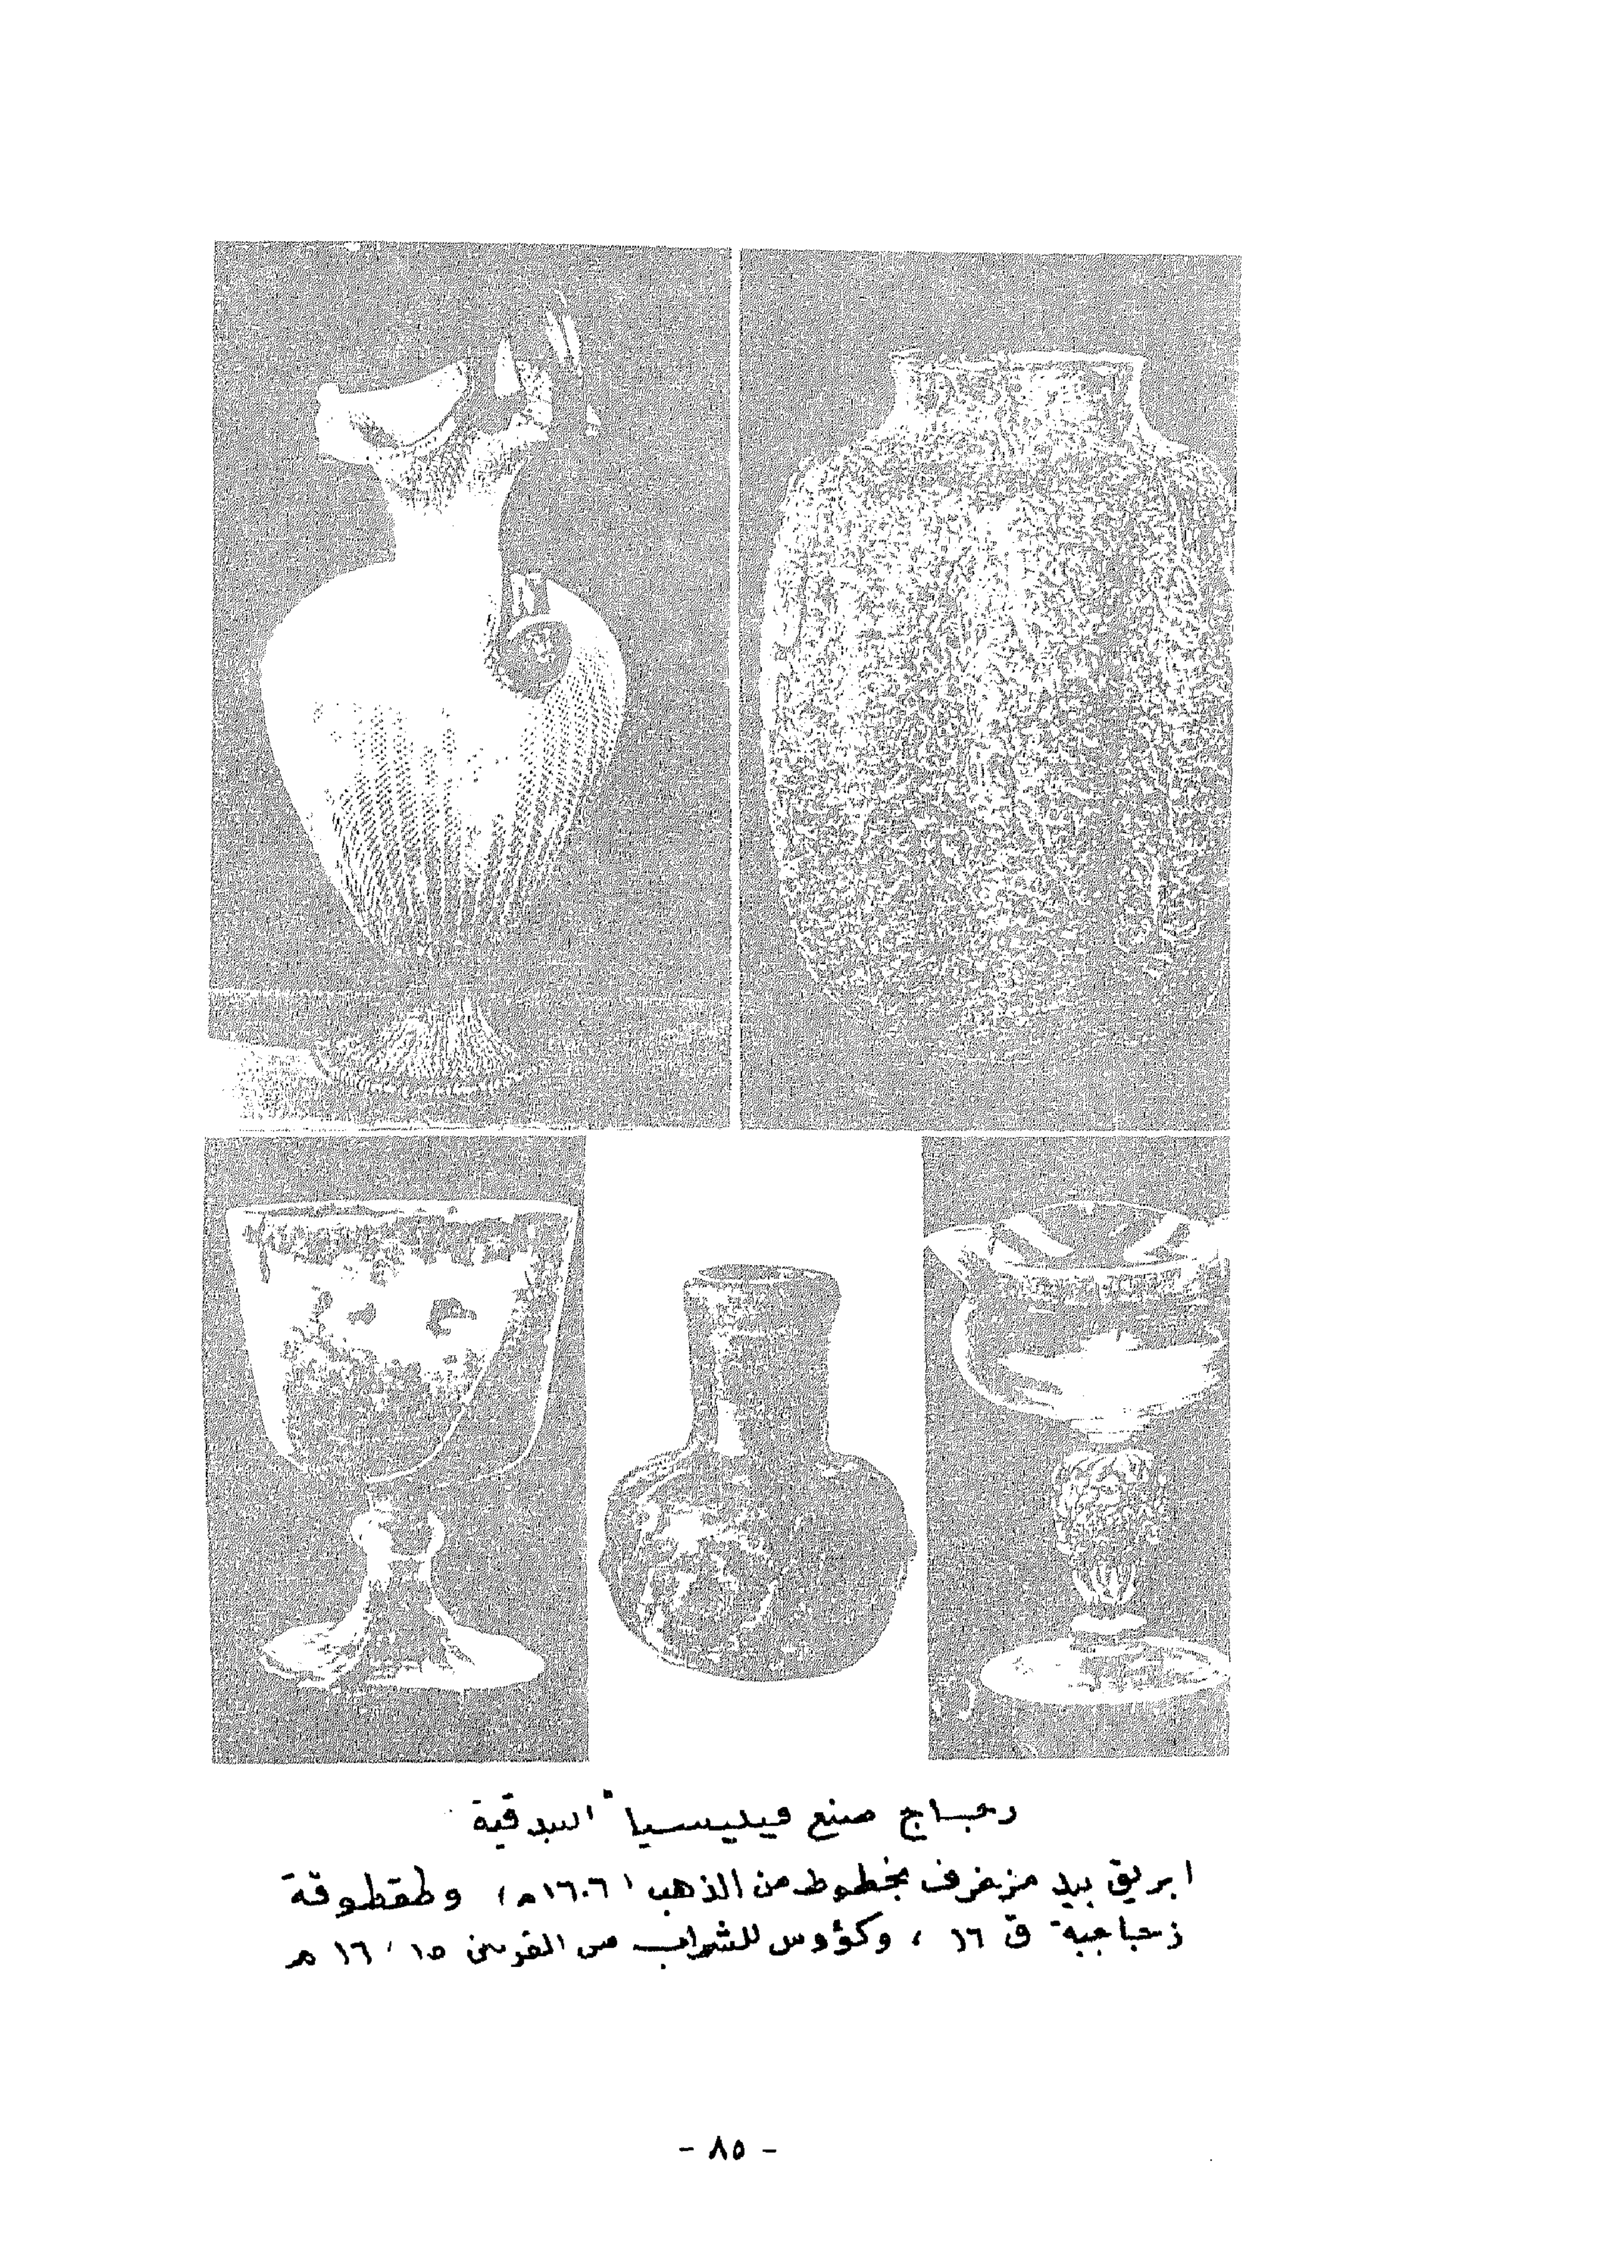 زجاج صنع فينيسيا "البندقية"
ابريق بيد مزخرف بخطوط من الذهب (١٦٠٦م)، وطقطوقة
زجاجية ق ١٦ ، وكؤوس للشراب من القرنين ١٥ ، ١٦ م
- ٨٥ -